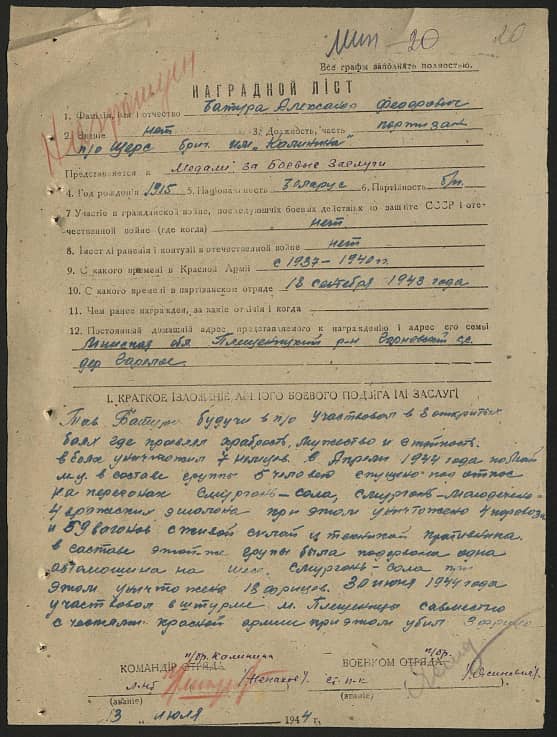 Мин - 20
20
Все графы заполнять полностью.
НАГРАДНОЙ ЛІСТ
1. Фамілія, імя і отчество Батура Александр Федорович
2. Званіе нет 3. Должность, часть партизан
п/о Щорс бриг. им. „Калинина"
Представляется к Медалі За Боевые Заслуги
4. Год рождения 1915 5. Національность Беларус 6. Партійность б/п.
7. Участіе в гражданской войне, последующіх боевых действіях по защите СССР і оте-
чественной войне (где когда) нет
8. Імеет лі раненія і контузіі в отечественной войне нет
9. С какого времені в Красной Арміі с 1937 - 1940 гг.
10. С какого времені в партізанском отряде 18 сентября 1943 года
11. Чем ранее награжден, за какіе отлічія і когда
12. Постоянный домашній адрес представляемого к награжденію і адрес его семьі
Минская обл Плещеницкий р-н
дер
І. КРАТКОЕ ІЗЛОЖЕНІЕ ЛІЧНОГО БОЕВОГО ПОДВІГА ІЛІ ЗАСЛУГІ
Тов. Батура будучи в п/о участвовал в 8 открытых
боях где проявлял храбрость, мужество и стойкость.
в боях уничтожил 7 немцев. в Апреле 1944 года
в составе группы 5 человек спущено под откос
на перегонах Сморгонь - Сола, Сморгонь -
4 вражеских эшелона при этом уничтожено 4 паровоза
и 59 вагонов с живой силой и техникой противника.
в составе этой же групы была подорвана одна
автомашина на шос. Сморгонь - Сола при
этом уничтожено 18 фрицов. 30 июня 1944 года
участвовал в штурме м. Плещеницы савместно
с частями красной армии при этом убил 3 фрица
п/бр. Калинина
п/бр.
КОМАНДІР ОТРЯДА
ВОЕНКОМ ОТРЯДА
л-нт
ст. п-к
(званіе)
(званіе)
3 июля 1944 г.